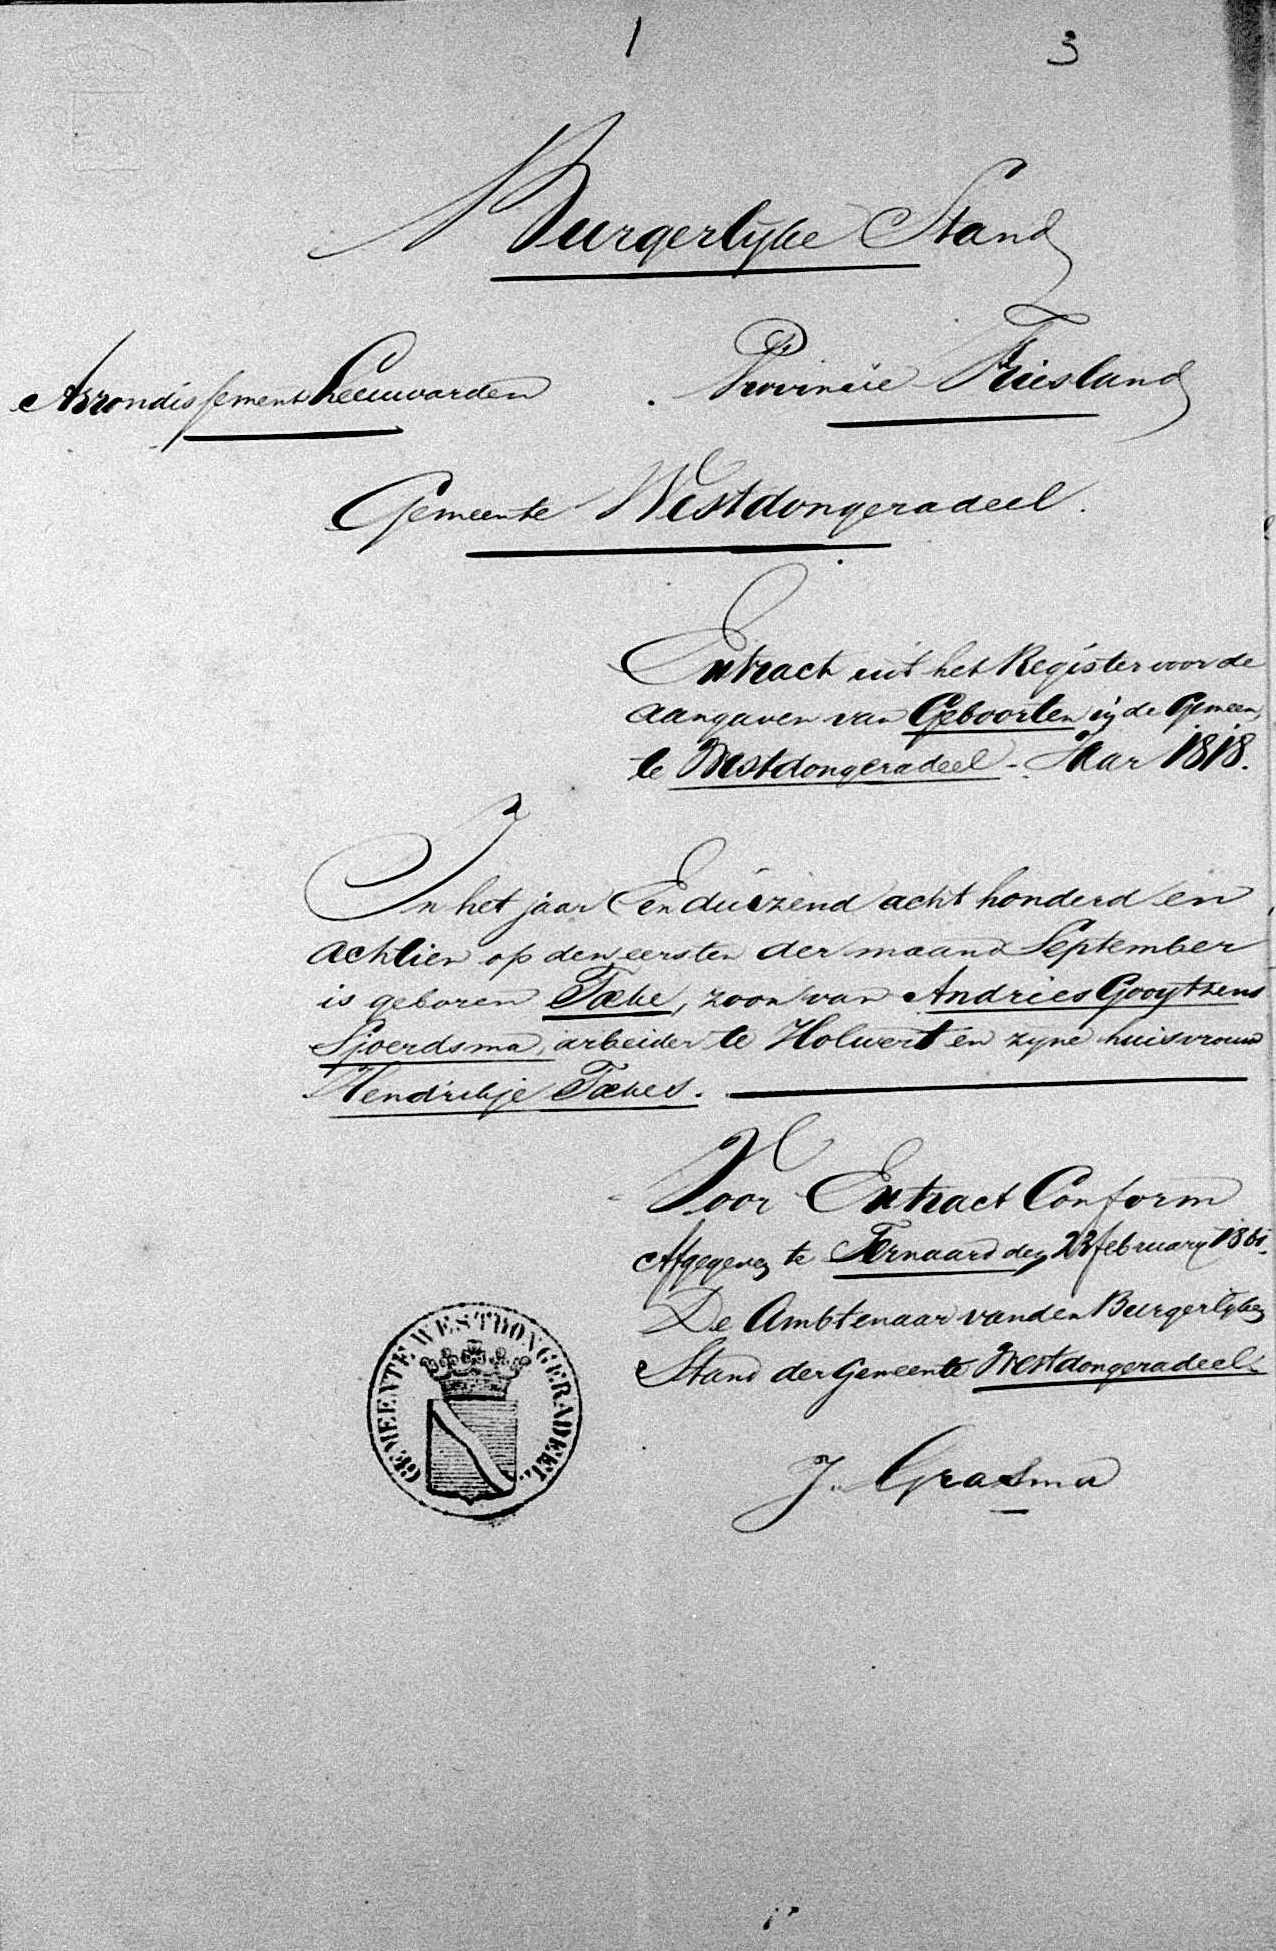 1 3
Burgerlyke Stand
Arrondissement Leeuwarden . Provincie Friesland
Gemeente Westdongeradeel.
Extract uit het Register voor de
aangaven van Geboorten in de Gemeen,
te Westdongeradeel - Jaar 1818.
In het jaar Een duizend acht honderd en
achtien op den eersten der maand September
is geboren Taeke, zoon van Andries Gooytzens
Sjoerdsma, arbeider te Holwert en zyne huisvrouw
Hendrikje Taekes.
Voor Extract Conform
Afgegeven te Ternaard den 23 february
De Ambtenaar van den Burgerlyken
Stand der Gemeente Westdongeradeel
GEMEENTE WESTDONGERADEEL.
J. Grasma